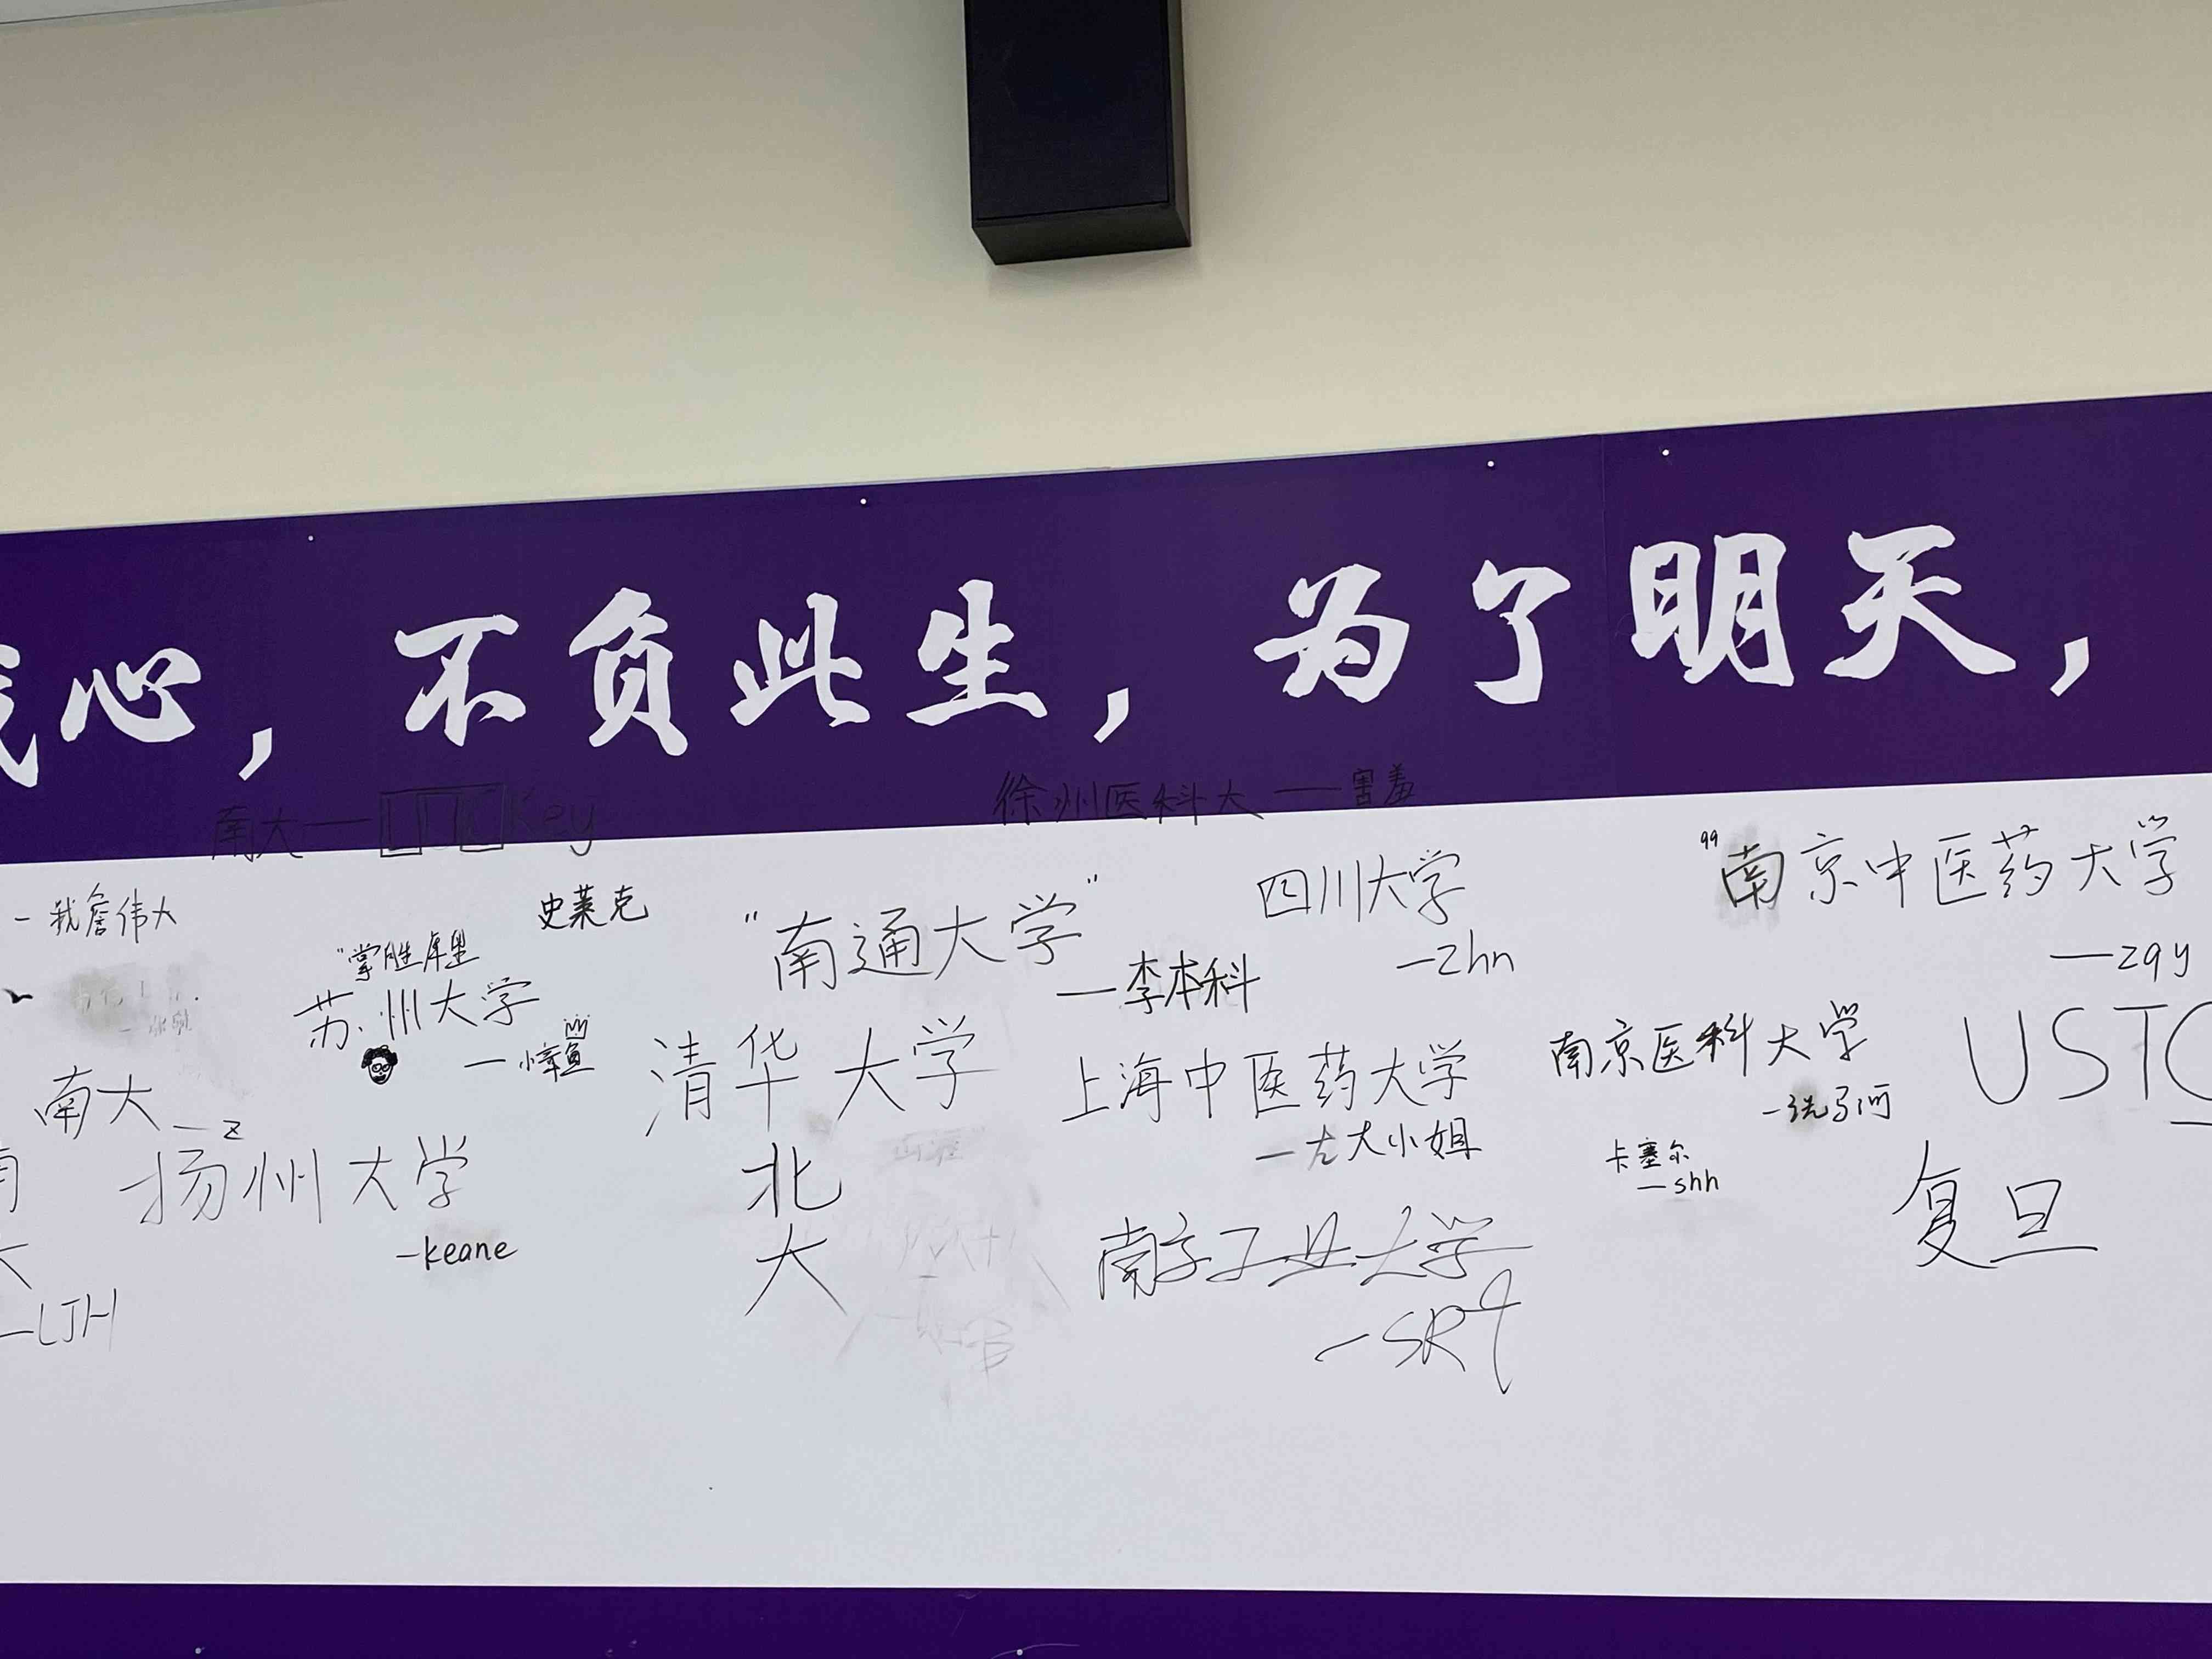 心，不负此生，为了明天，
南大—LUCKey
徐州医科大—害羞
-我詹伟大
史莱克
"南通大学"
—李本科
四川大学
—zhn
"南京中医药大学
—zqy
苏州大学
清华大学
北
大
上海中医药大学
大小姐
南京医科大学
USTC
南大—z
扬州大学
—keane
卡塞尔
—shh
复旦
—LJH
南京工业大学